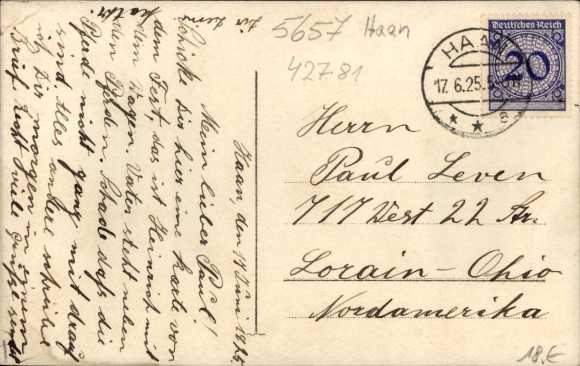 Haan, den 17 Juni 1925.
Mein lieber Paul!
Schicke Dir hier eine Karte von
dem Fest, das ist Heinrich mit
dem Wagen, Vater steht neben
den Pferden. Schade daß die
Pferde nicht ganz mit drauf
sind. Alles andere schreibe
ich Dir morgen in einem
Brief. Recht viele Grüße
5657 Haan
42781
Deutsches Reich
20
HAAN
17.6.25.
Herrn
Paul Leven
717 West 22 Str.
Lorain-Ohio
Nordamerika
18.€